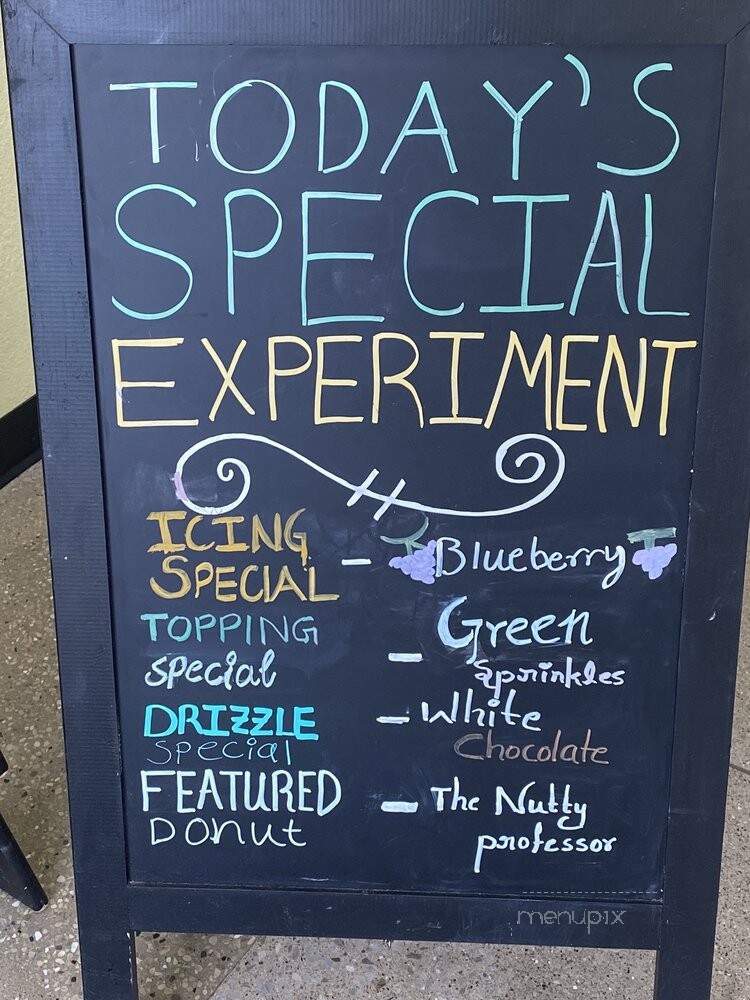 TODAY'S
SPECIAL
EXPERIMENT
ICING
SPECIAL - Blueberry
TOPPING
special - Green
sprinkles
DRIZZLE - White
special Chocolate
FEATURED - The Nutty
Donut professor
menupix